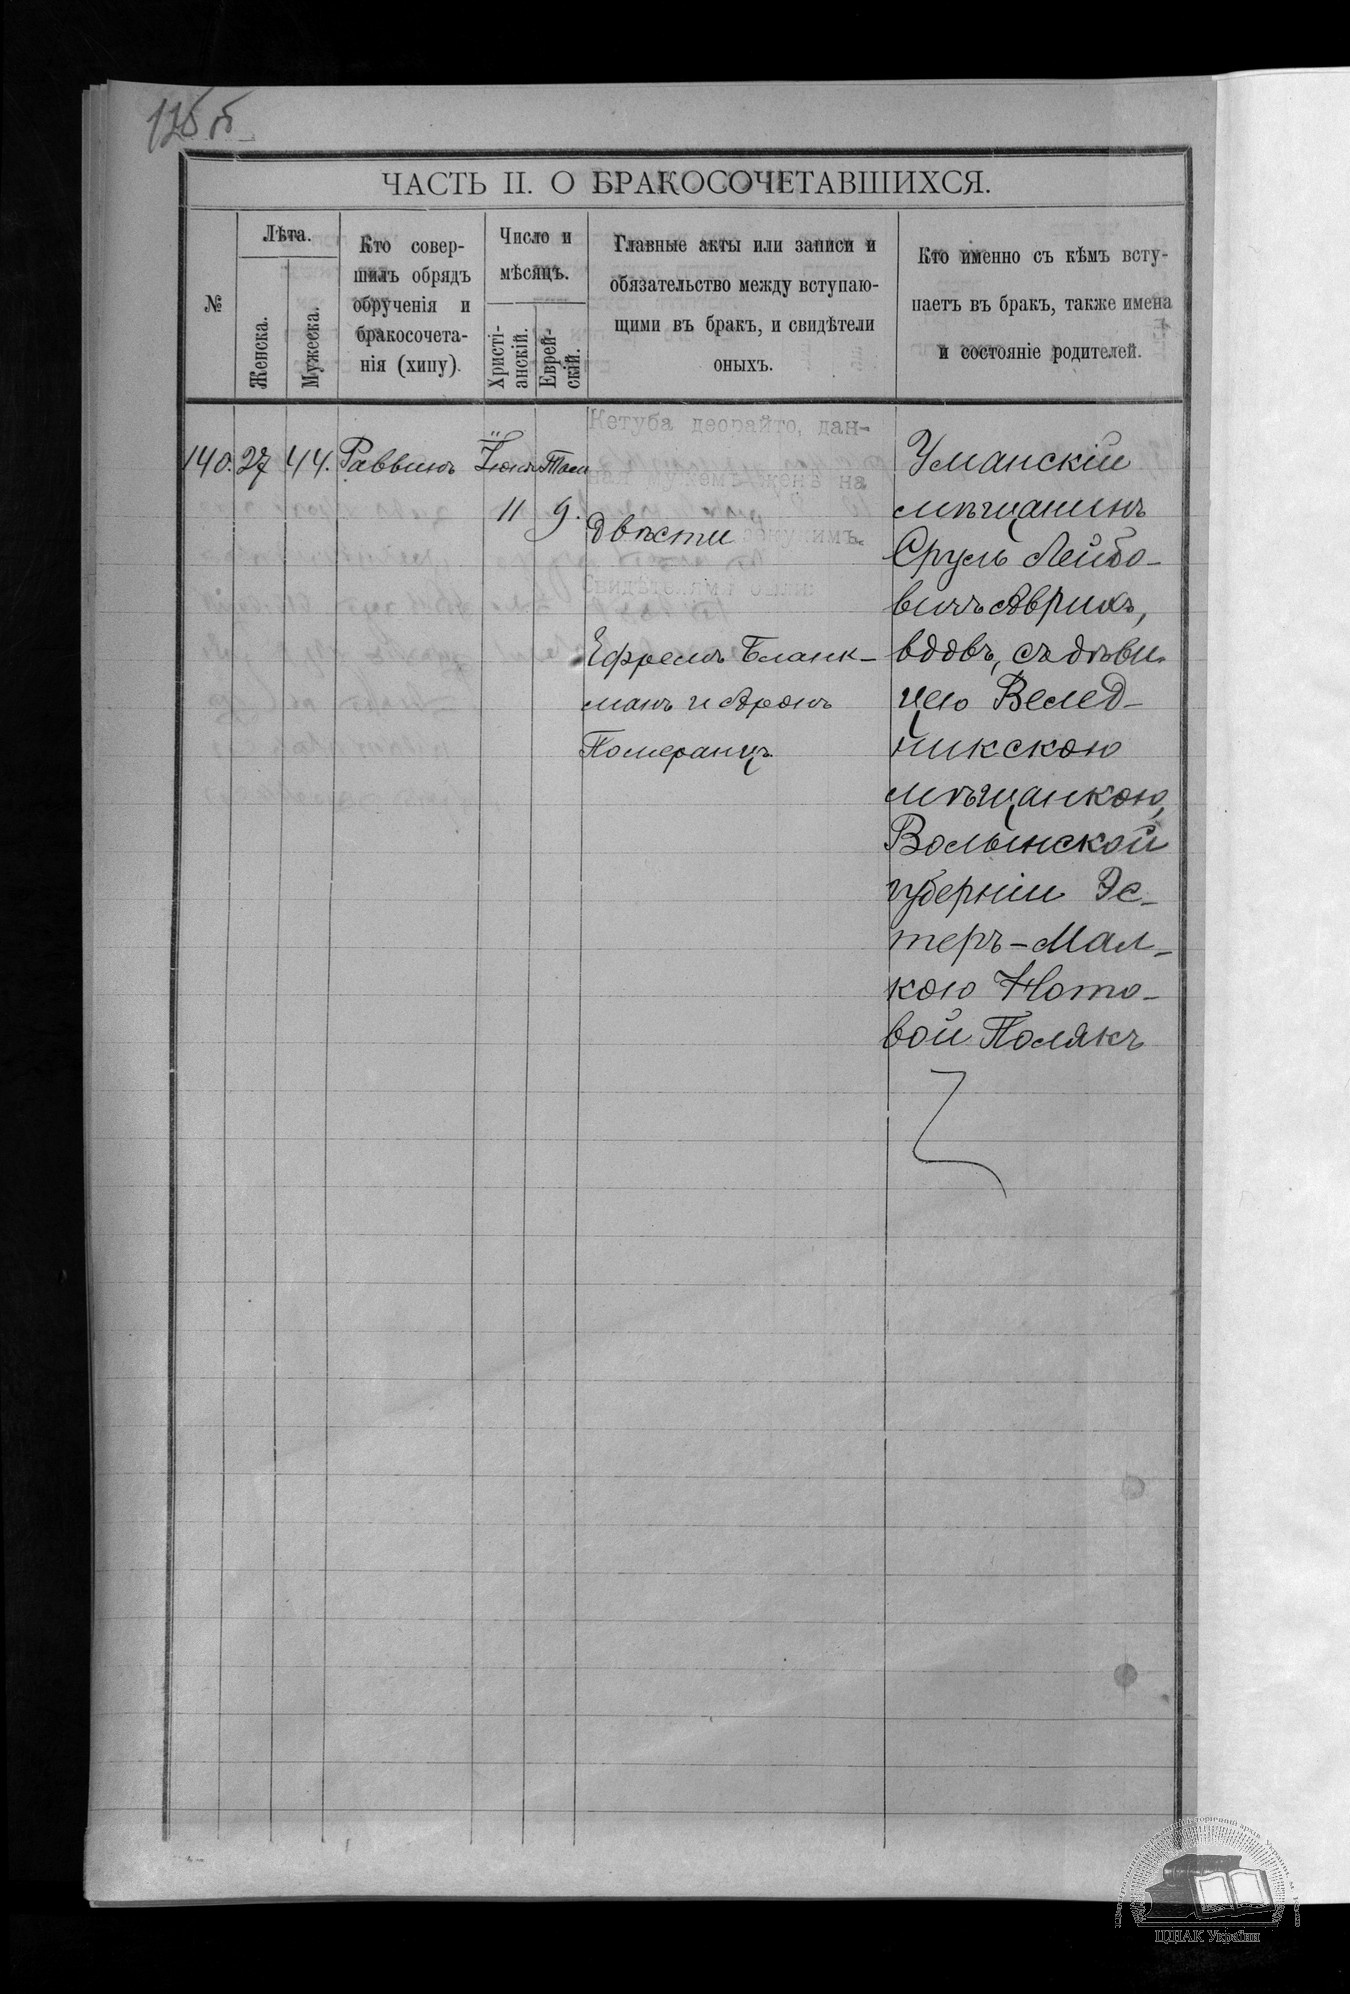 125 б
ЧАСТЬ II. О БРАКОСОЧЕТАВШИХСЯ.
№
Лѣта.
Женска.
Мужеска.
Кто совер-
шилъ обрядъ
обрученія и
бракосочета-
нія (хипу).
Число и
мѣсяцъ.
Христі-
анскій.
Еврей-
скій.
Главные акты или записи и
обязательство между вступаю-
щими въ бракъ, и свидѣтели
оныхъ.
Кто именно съ кѣмъ всту-
паетъ въ брак, также имена
и состояніе родителей.
140.
27
44.
Раввинъ
11
9.
Кетуба деорайто, дан-
ная мужемъ женѣ на
двѣсти зекукимъ.
Свидѣтелями были:
Ефремъ Бланк-
манъ и Аронъ
Померанцъ
Уманскій
мѣщанинъ
Сруль Лейбо-
вичъ Аврихъ,
вдовъ, съ дѣви-
цею Велед-
никскою
мѣщанкою,
Волынской
губерніи Эс-
теръ-Мал-
кою Ното-
вой Полякъ
ЦДІАК України